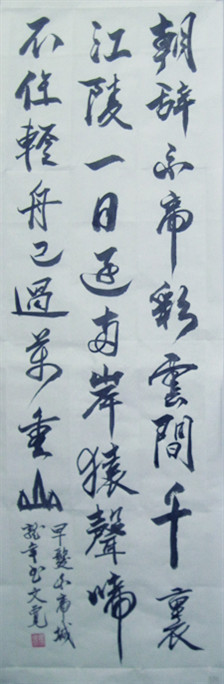 朝辭白帝彩雲間千裏
江陵一日還兩岸猿聲啼
不住輕舟已過萬重山
早發白帝城
龍年书文